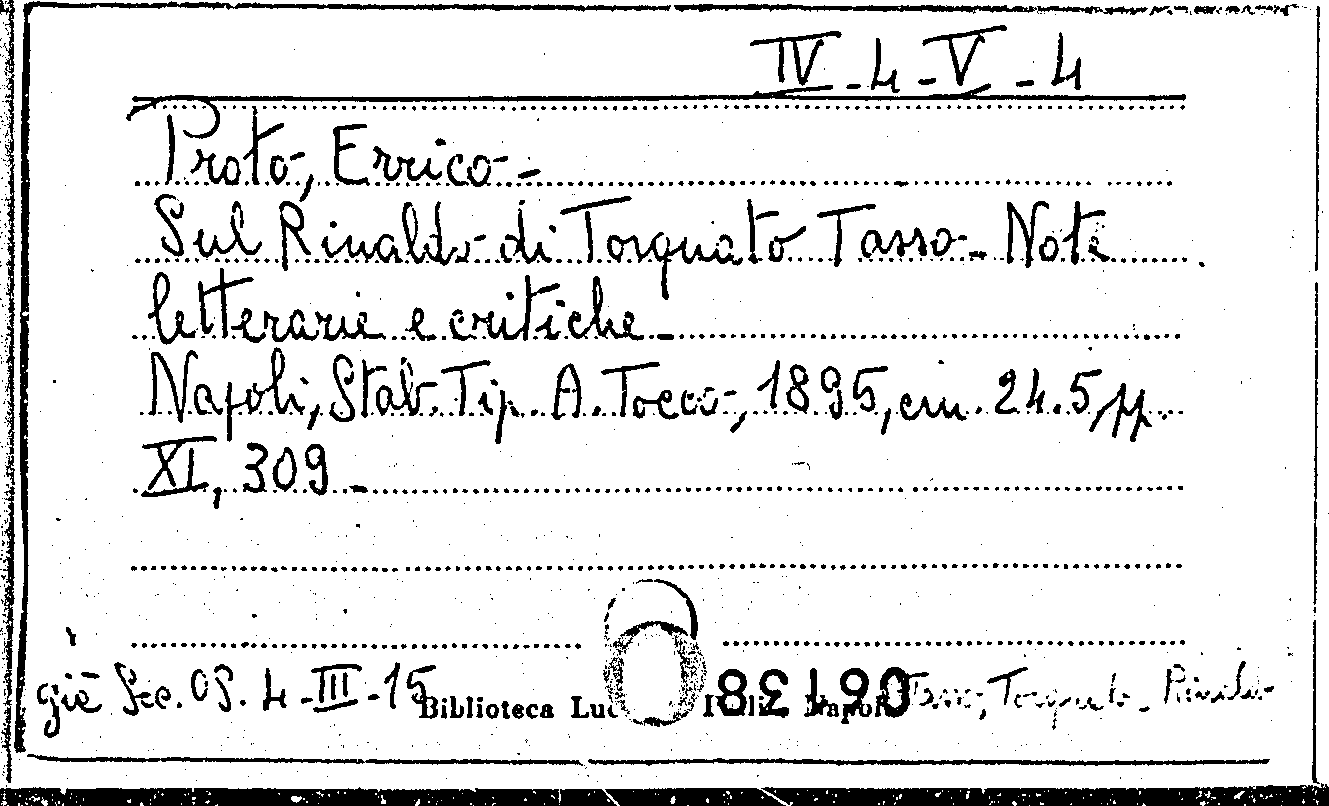 IV-4-V-4
Proto, Errico-
Sul Rinaldo di Torquato Tasso- Note
letterarie e critiche-
Napoli, Stab. Tip. A. Tocco, 1895, cm. 24.5, pp.
XI, 309-
già Sec. OS. 4-III-15
Biblioteca Napoli
Tasso, Torquato - Rinaldo